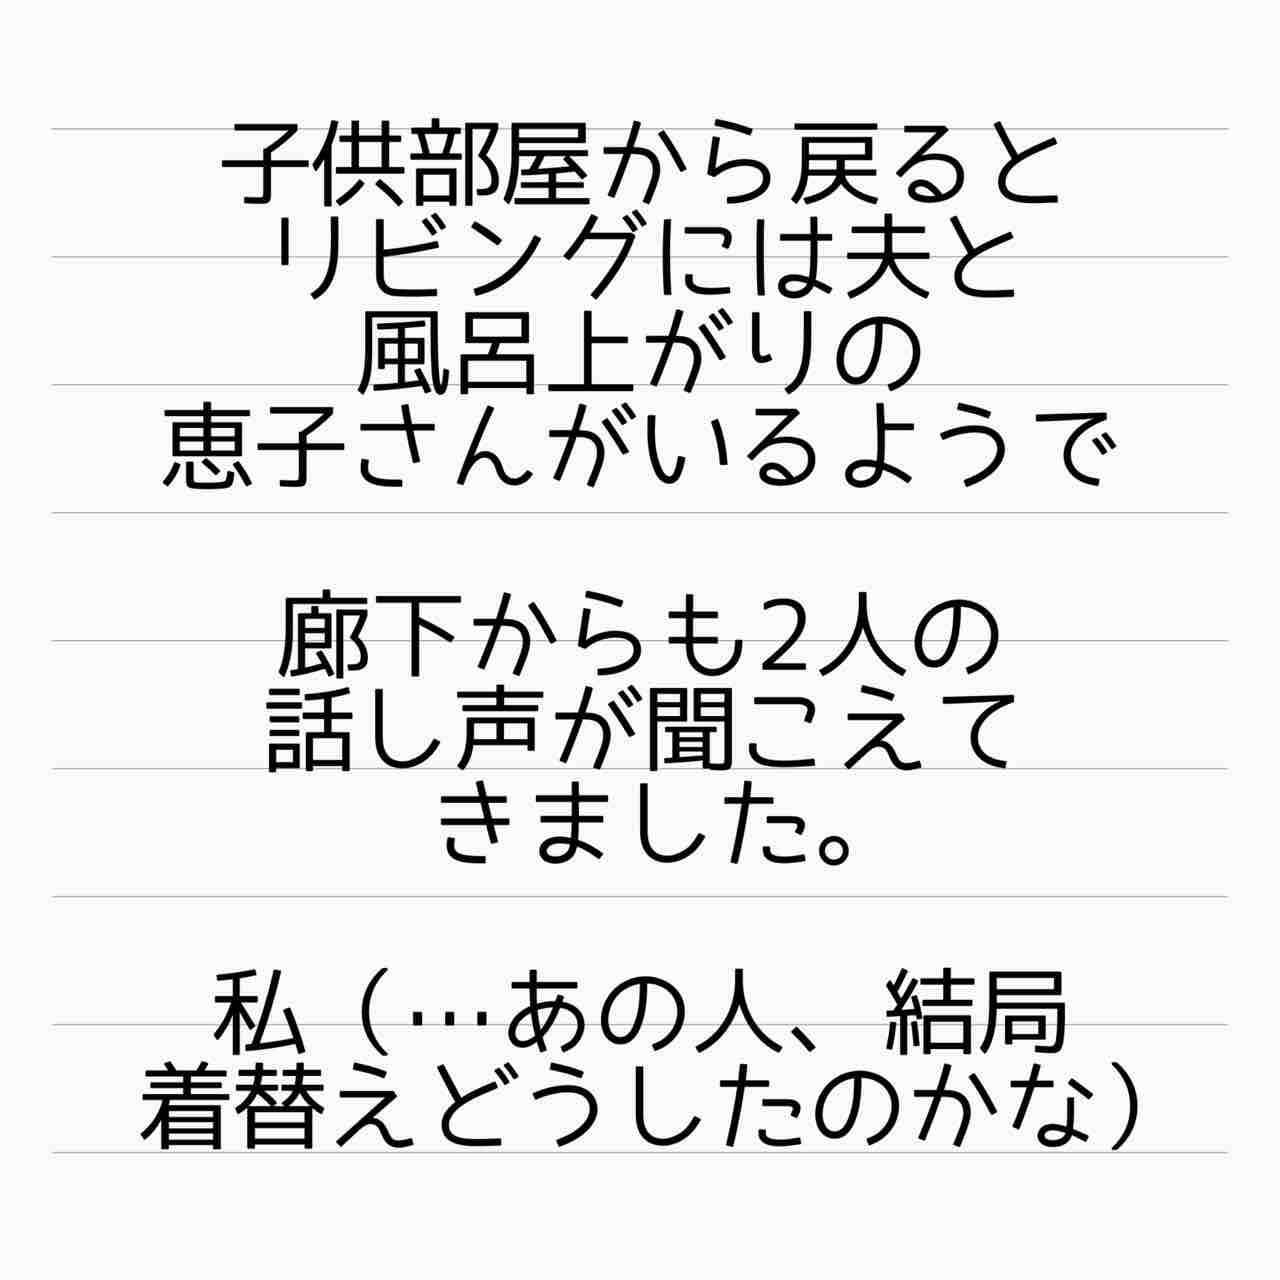 子供部屋から戻ると
リビングには夫と
風呂上がりの
恵子さんがいるようで
廊下からも2人の
話し声が聞こえて
きました。
私（…あの人、結局
着替えどうしたのかな）